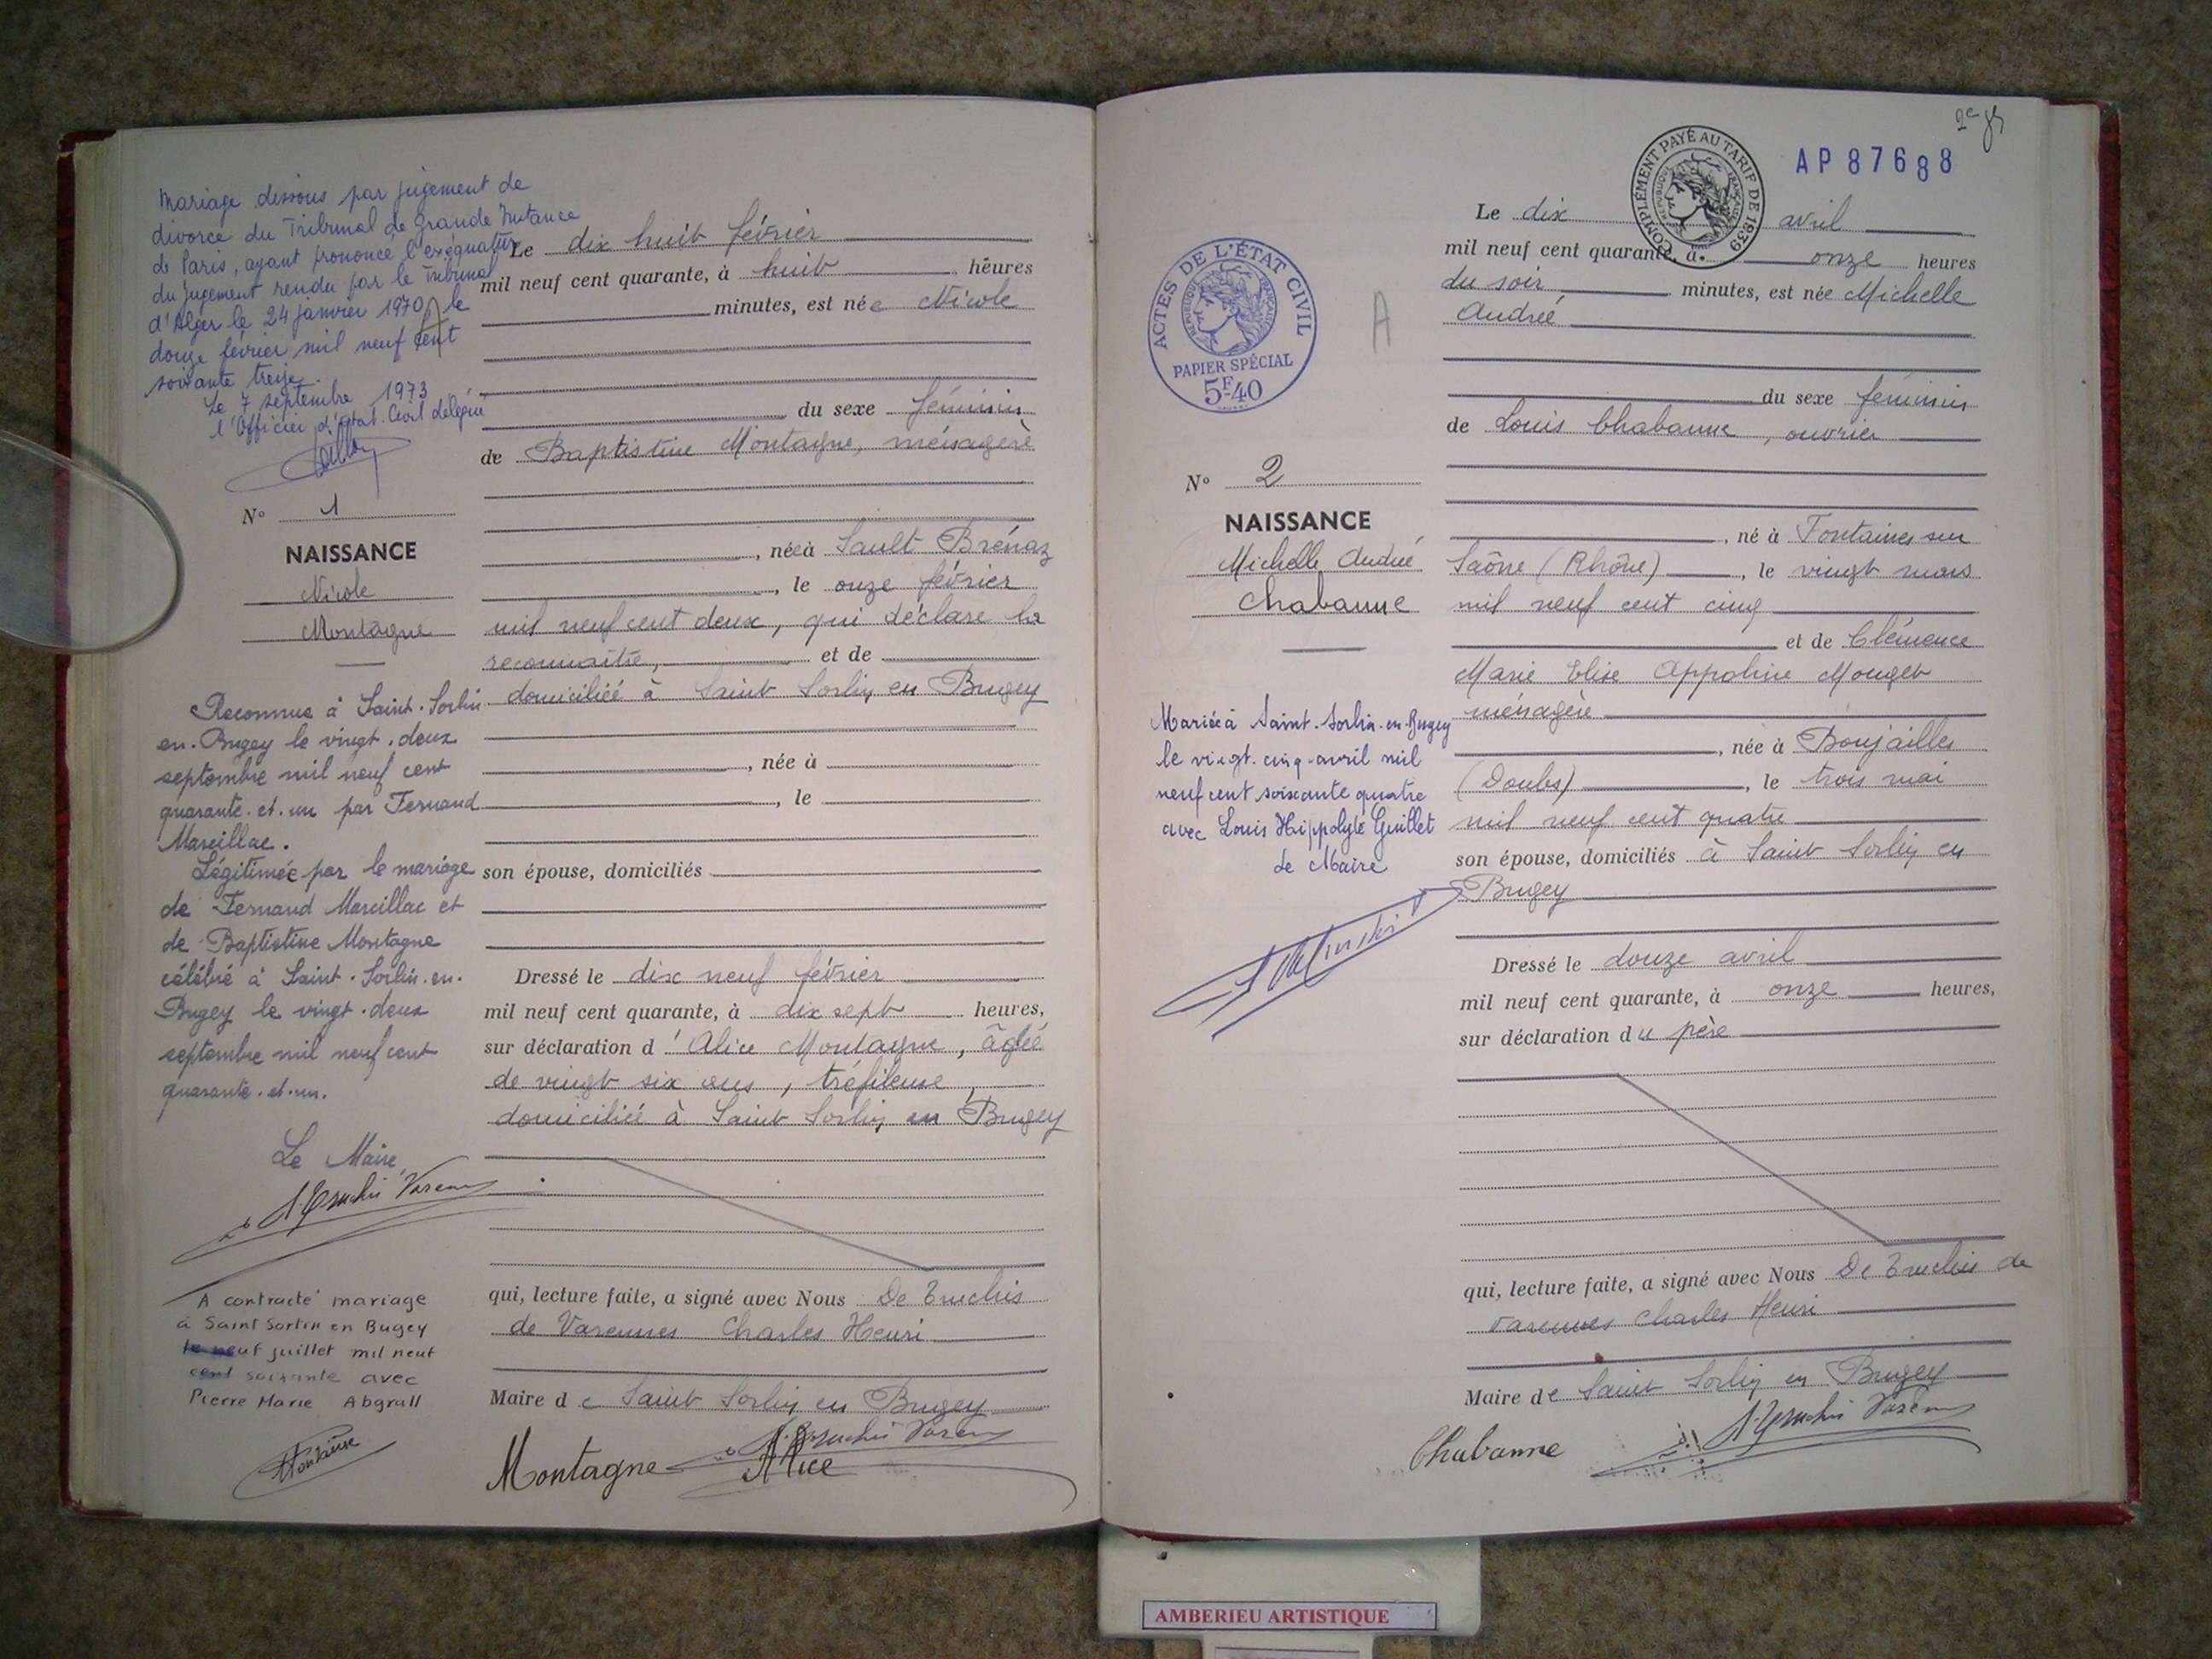 Mariage dissous par jugement de
divorce du Tribunal de Grande Instance
de Paris, ayant prononcé l'exequatur
du jugement rendu par le Tribunal
d'Alger le 24 janvier 1970, le
douze février mil neuf cent
soixante treize.
Le 7 septembre 1973
l'Officier d'état-Civil délégué
N° 1
NAISSANCE
Nicole
Montagne
Reconnue à Saint-Sorlin
en-Bugey le vingt-deux
septembre mil neuf cent
quarante-et-un par Fernand
Marcillac.
Légitimée par le mariage
de Fernand Marcillac et
de Baptistine Montagne
célébré à Saint-Sorlin-en-
Bugey le vingt-deux
septembre mil neuf cent
quarante-et-un.
Le Maire,
A contracté mariage
à Saint Sorlin en Bugey
le neuf juillet mil neuf
cent soixante avec
Pierre Marie Abgrall
Le dix huit février
mil neuf cent quarante, à huit heures
minutes, est née Nicole
du sexe féminin
de Baptistine Montagne, ménagère
, née à Sault Brénaz
, le onze février
mil neuf cent deux, qui déclare la
reconnaître, et de
domiciliée à Saint Sorlin en Bugey
, née à
, le
son épouse, domiciliés
Dressé le dix neuf février
mil neuf cent quarante, à dix sept heures,
sur déclaration d'Alice Montagne, âgée
de vingt six ans, tréfileuse,
domiciliée à Saint Sorlin en Bugey
qui, lecture faite, a signé avec Nous De Truchis
de Varennes Charles Henri
Maire de Saint Sorlin en Bugey
Montagne Alice
2e
COMPLÉMENT PAYÉ AU TARIF DE 1939
RÉPUBLIQUE FRANÇAISE
AP 87688
ACTES DE L'ÉTAT CIVIL
RÉPUBLIQUE FRANÇAISE
PAPIER SPÉCIAL
5F40
A
N° 2
NAISSANCE
Michelle Andrée
Chabanne
Mariée à Saint-Sorlin-en-Bugey
le vingt-cinq-avril mil
neuf cent soixante quatre
avec Louis Hippolyte Guillet
Le Maire
Le dix avril
mil neuf cent quarante, à onze heures
du soir minutes, est née Michelle
Andrée
du sexe féminin
de Louis Chabanne, ouvrier
, né à Fontaines sur
Saône (Rhône), le vingt mars
mil neuf cent cinq
et de Clémence
Marie Elise Appoline Mouget
ménagère
, née à Boujailles
(Doubs), le trois mai
mil neuf cent quatre
son épouse, domiciliés à Saint Sorlin en
Bugey
Dressé le douze avril
mil neuf cent quarante, à onze heures,
sur déclaration du père
qui, lecture faite, a signé avec Nous De Truchis de
Varennes Charles Henri
Maire de Saint Sorlin en Bugey
Chabanne
AMBERIEU ARTISTIQUE